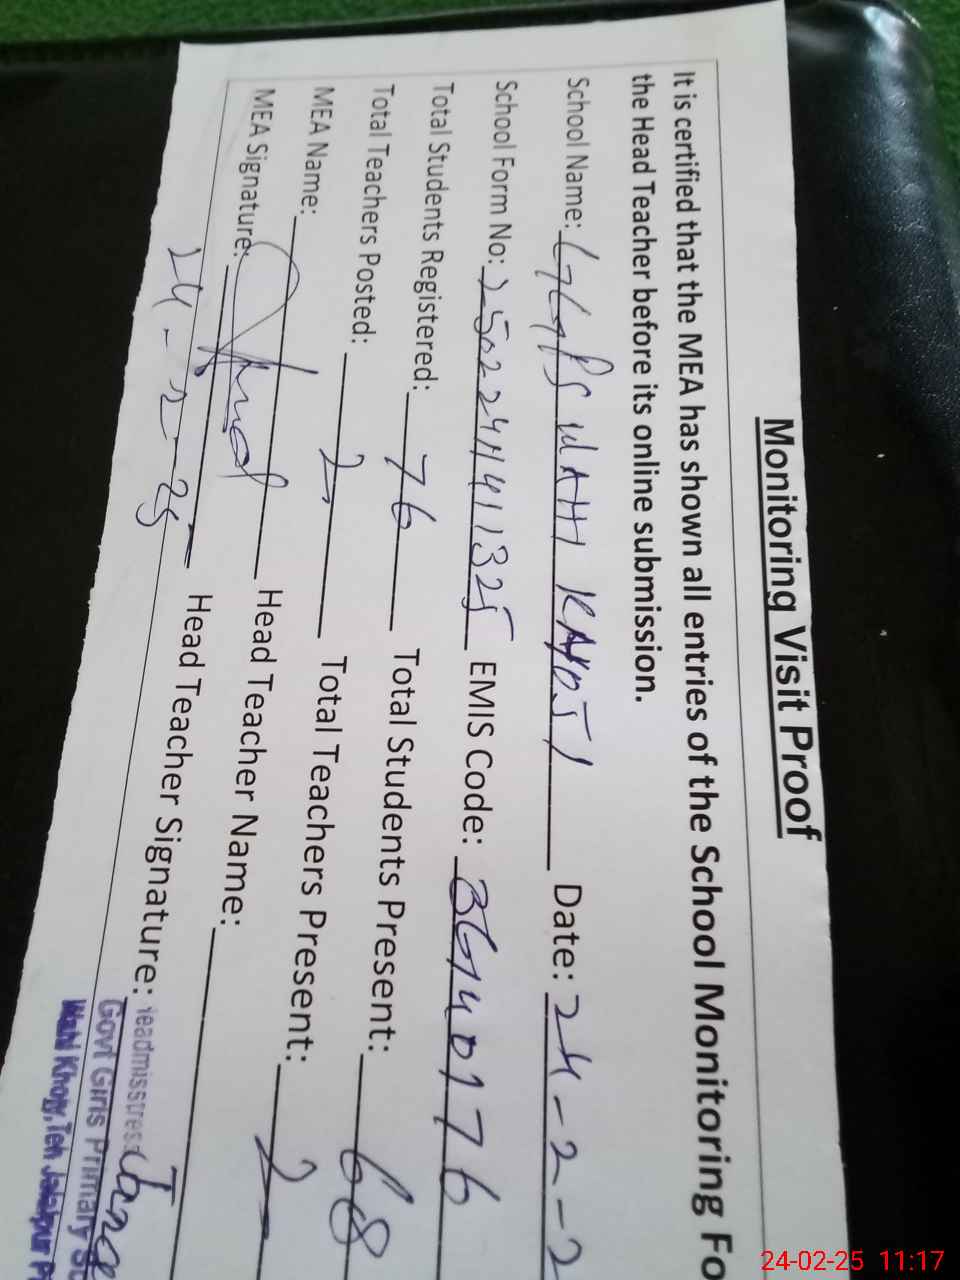 Monitoring Visit Proof
It is certified that the MEA has shown all entries of the School Monitoring Fo
the Head Teacher before its online submission.
School Name: GGPS WAHI KHOJI Date: 24-2-2
School Form No: 2502244411325 EMIS Code: 36140176
Total Students Registered: 76 Total Students Present: 68
Total Teachers Posted: 2 Total Teachers Present: 2
MEA Name: Head Teacher Name:
MEA Signature: Head Teacher Signature:
24-2-25
Headmistress
Govt Girls Primary
Wahi Khojy, Teh Jalalpur P
24-02-25 11:17